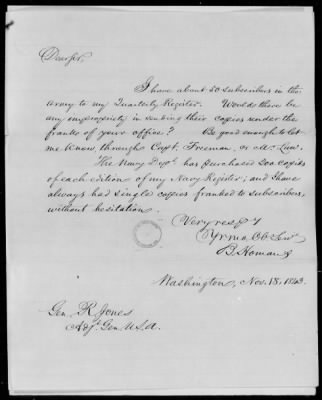 Dear Sir,
I have about 50 subscribers in the
Army to my Quarterly Register. Would there be
any impropriety in sending their copies under the
franks of your office? Be good enough to let
me know, through Capt. Freeman, or Mr. Law.
The Navy Dept. has purchased 200 copies
of each edition of my Navy Register; and I have
always had single copies franked to subscribers,
without hesitation.
Very respy
Yr mo Ob Servt
B. Homans
Washington, Nov. 18, 1843.
Gen. R. Jones
Adjt. Gen. U.S.A.